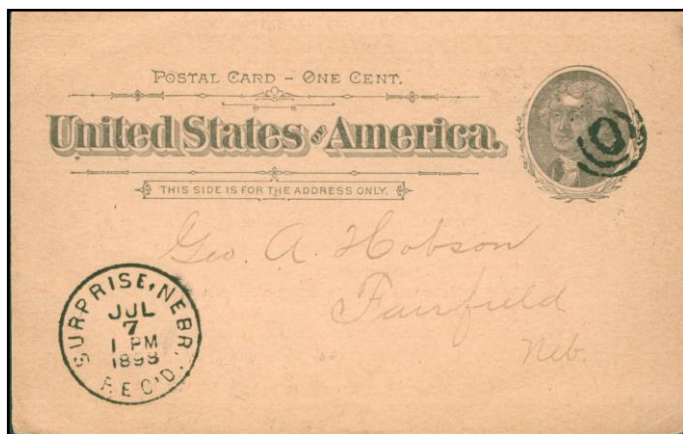 POSTAL CARD – ONE CENT.
United States of America.
THIS SIDE IS FOR THE ADDRESS ONLY.
Geo. A. Hobson
Fairfield
Neb.
SURPRISE, NEBR.
JUL
7
1 PM
1898
REC'D.